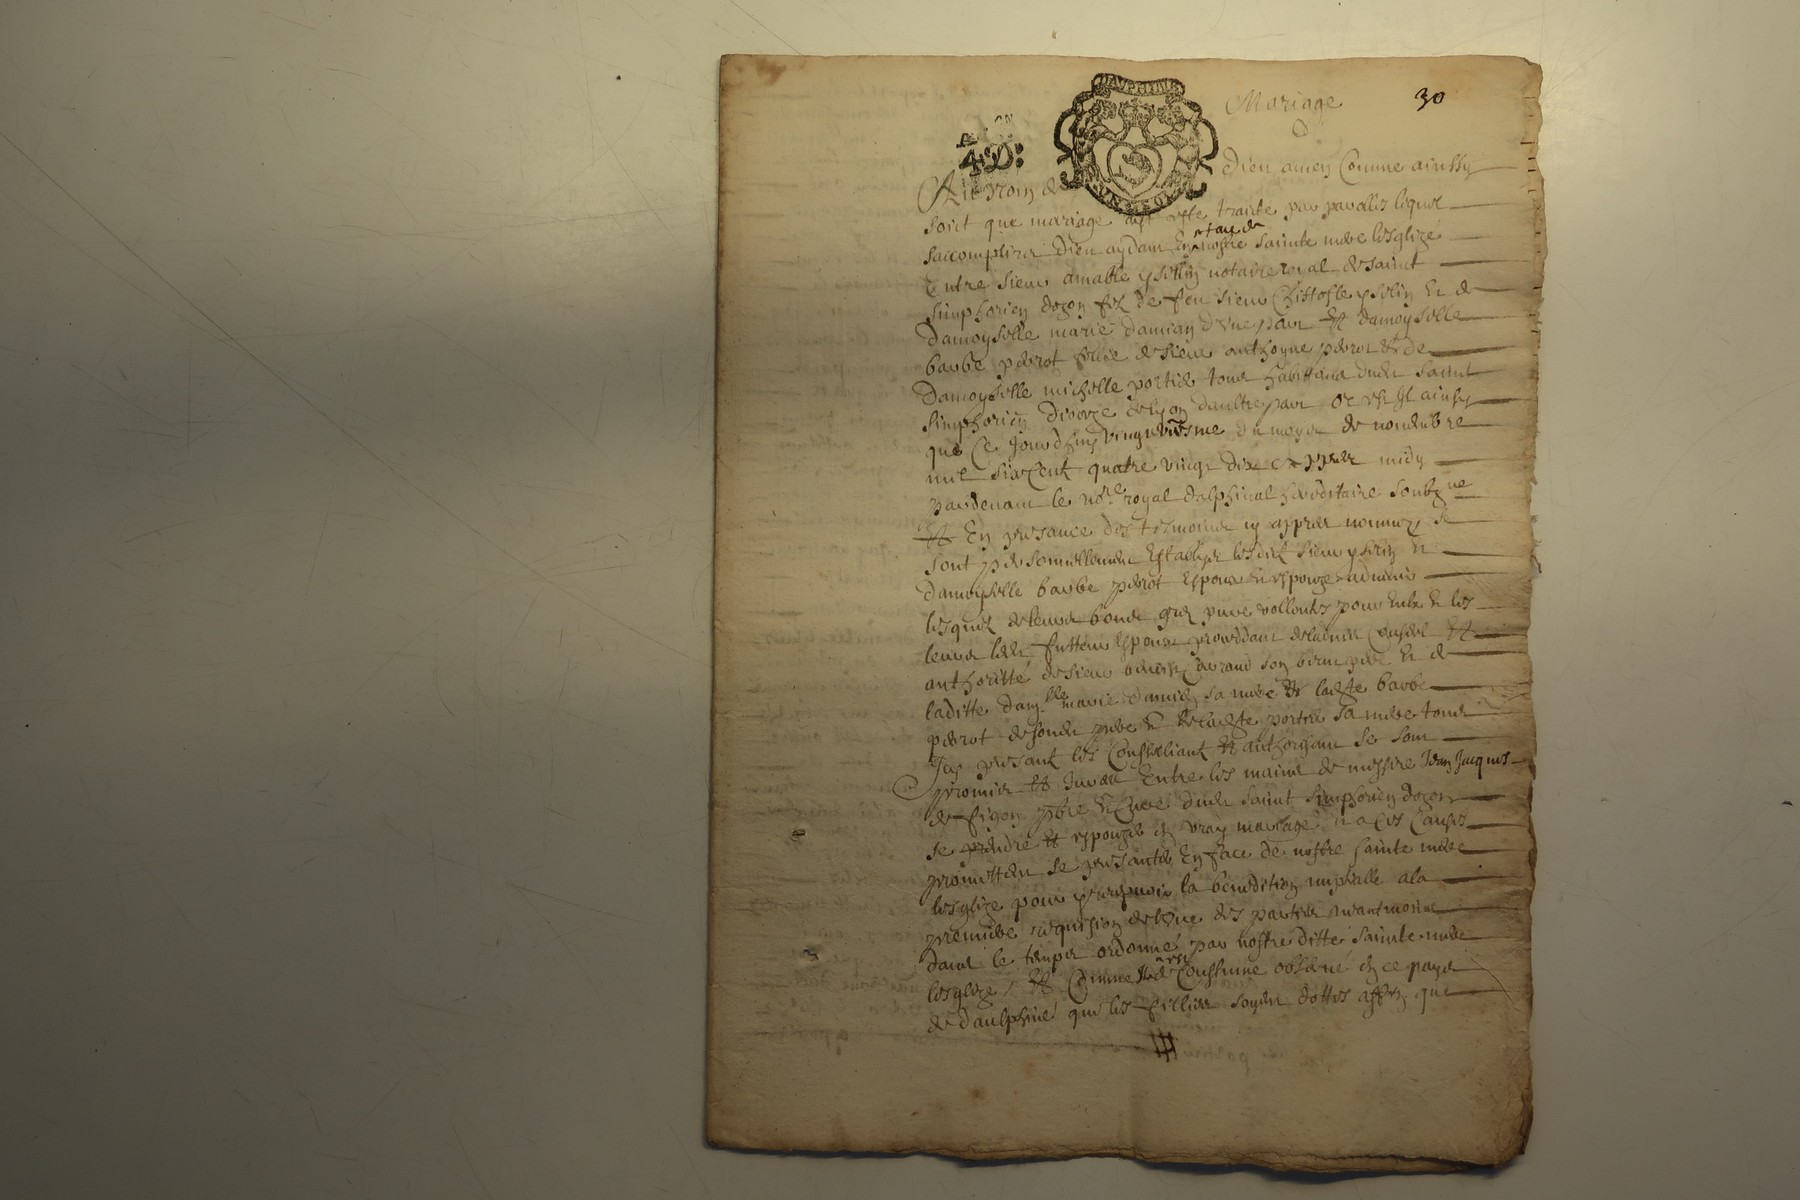 Mariage
30
DAVPHINE
Au nom de Dieu amen Comme ainssy
soict que mariage ayt esté traicté par parolles lequel
saccomplira Dieu aydant en face de nostre sainte mere lesglize
Entre sieur amable yselin notaire royal de saint
simphorien dozon filz de feu sieur Christofle yselin et de
Damoyselle marie damian dune part et damoyselle
barbe perrot fillie de sieur anthoyne perrot et de
Damoyselle michelle portier tous habittans dudit saint
simphorien dioceze de lyon daultre part or est il ainsy
que ce jourdhuy vingt du moys de novembre
mil six cent quatre vingt dix appres midy
pardevant le no.re royal dalphinal hereditaire soubz.ne
et en presance des tesmoins cy appres nommez se
sont personnellement establys lesdits sieur yselin et
damoyselle barbe perrot espoux et espouze advenir
lesquelz de leurs bonnes grez pures vollontes pour eulx et les
leurs lesdits futturs espoux proceddant de ladvis conseil et
authoritté de sieur son beau pere et de
laditte dam.lle marie damian sa mere et ladite barbe
perrot de sondit pere et de ladite portier sa mere tous
icy presants les conseilliant et authorizant se sont
promis et juré entre les mains de messire Jean Jacques
de figon pbre et curé dudit saint simphorien dozon
se prendre et espouzer en vray mariage et a ces causes
promettent se presanter en face de nostre sainte mere
lesglize pour y recepvoir la benedition nuptialle a la
premiere requision de lune des parties neantmoins
dans le temps ordonné par nostre ditte sainte mere
lesglize / et comme cest de coustume observé en ce pays
de daulphiné que les fillies soyent dottes affin que